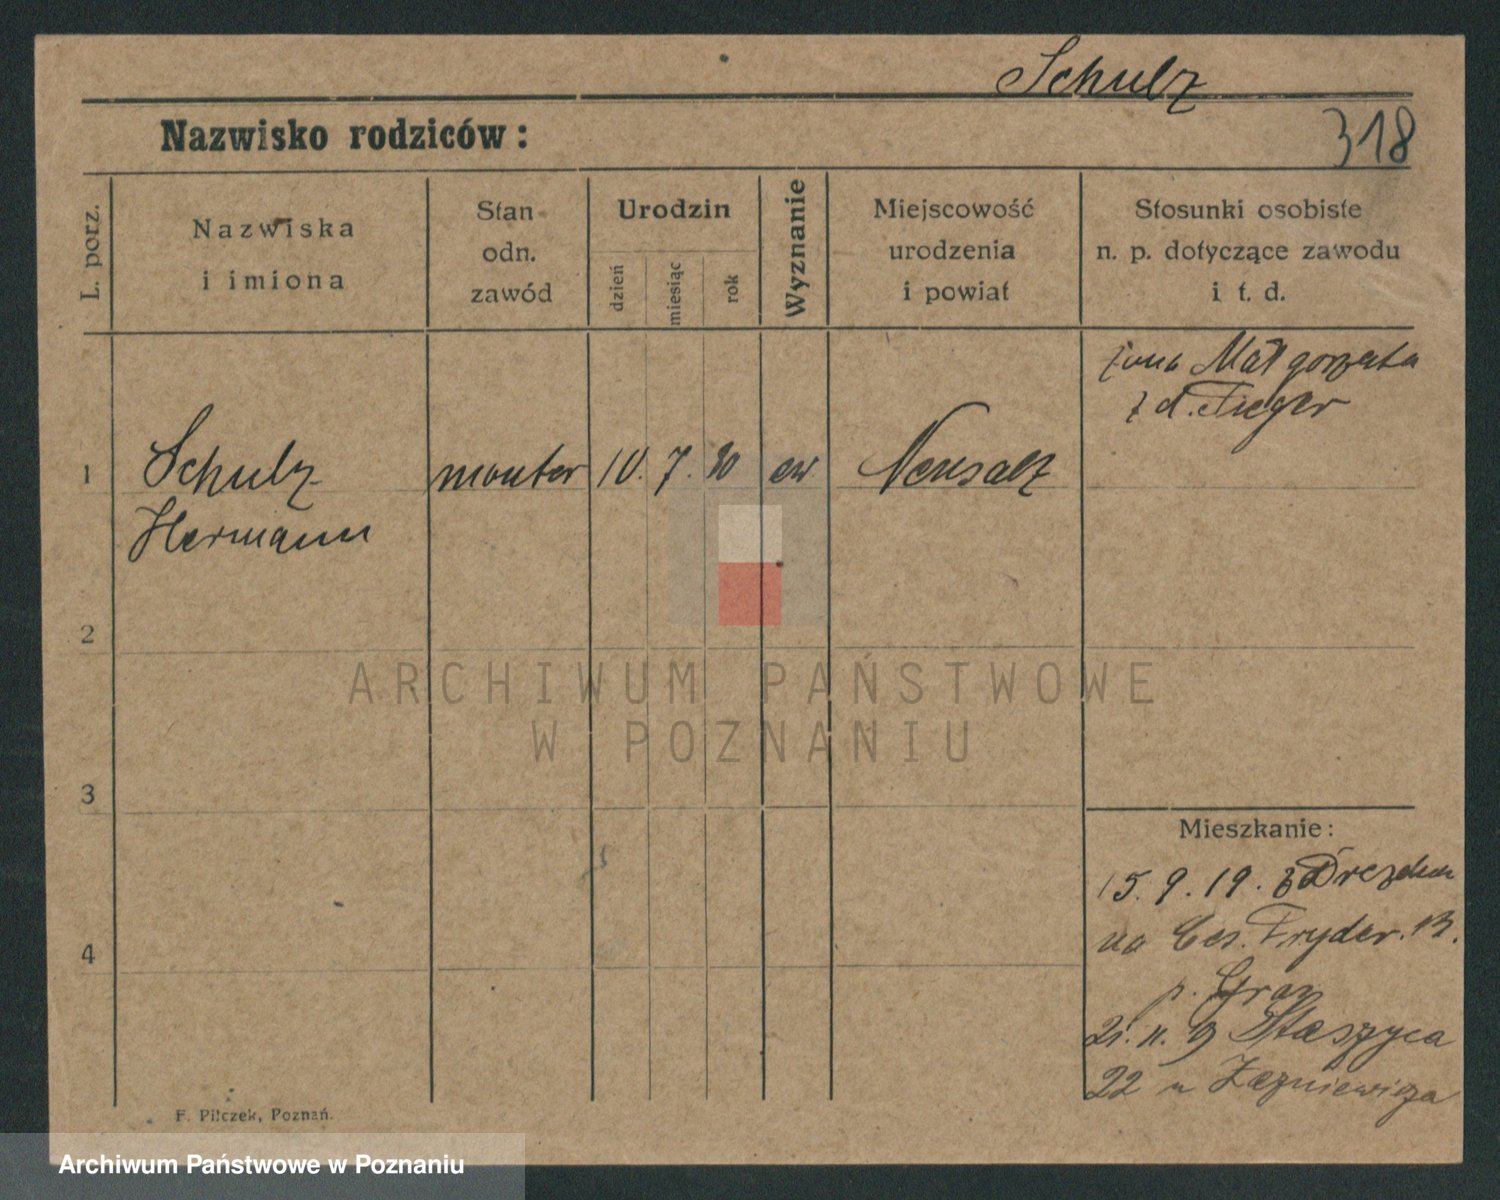 Schulz
Nazwisko rodziców:
318
L. porz.
Nazwiska
i imiona
Stan
odn.
zawód
Urodzin
dzień
miesiąc
rok
Wyznanie
Miejscowość
urodzenia
i powiat
Stosunki osobiste
n. p. dotyczące zawodu
i t. d.
żona Małgorzata
z d. Tieger
1
Schulz
monter
10. 7. 80
ew.
Neusalz
Hermann
2
ARCHIWUM PAŃSTWOWE
W POZNANIU
3
Mieszkanie:
15. 9. 19. z Drezdna
na Ces. Fryder.
p. Graz
21. 11. 19 Staszyca
22 u
4
F. Pilczek, Poznań.
Archiwum Państwowe w Poznaniu